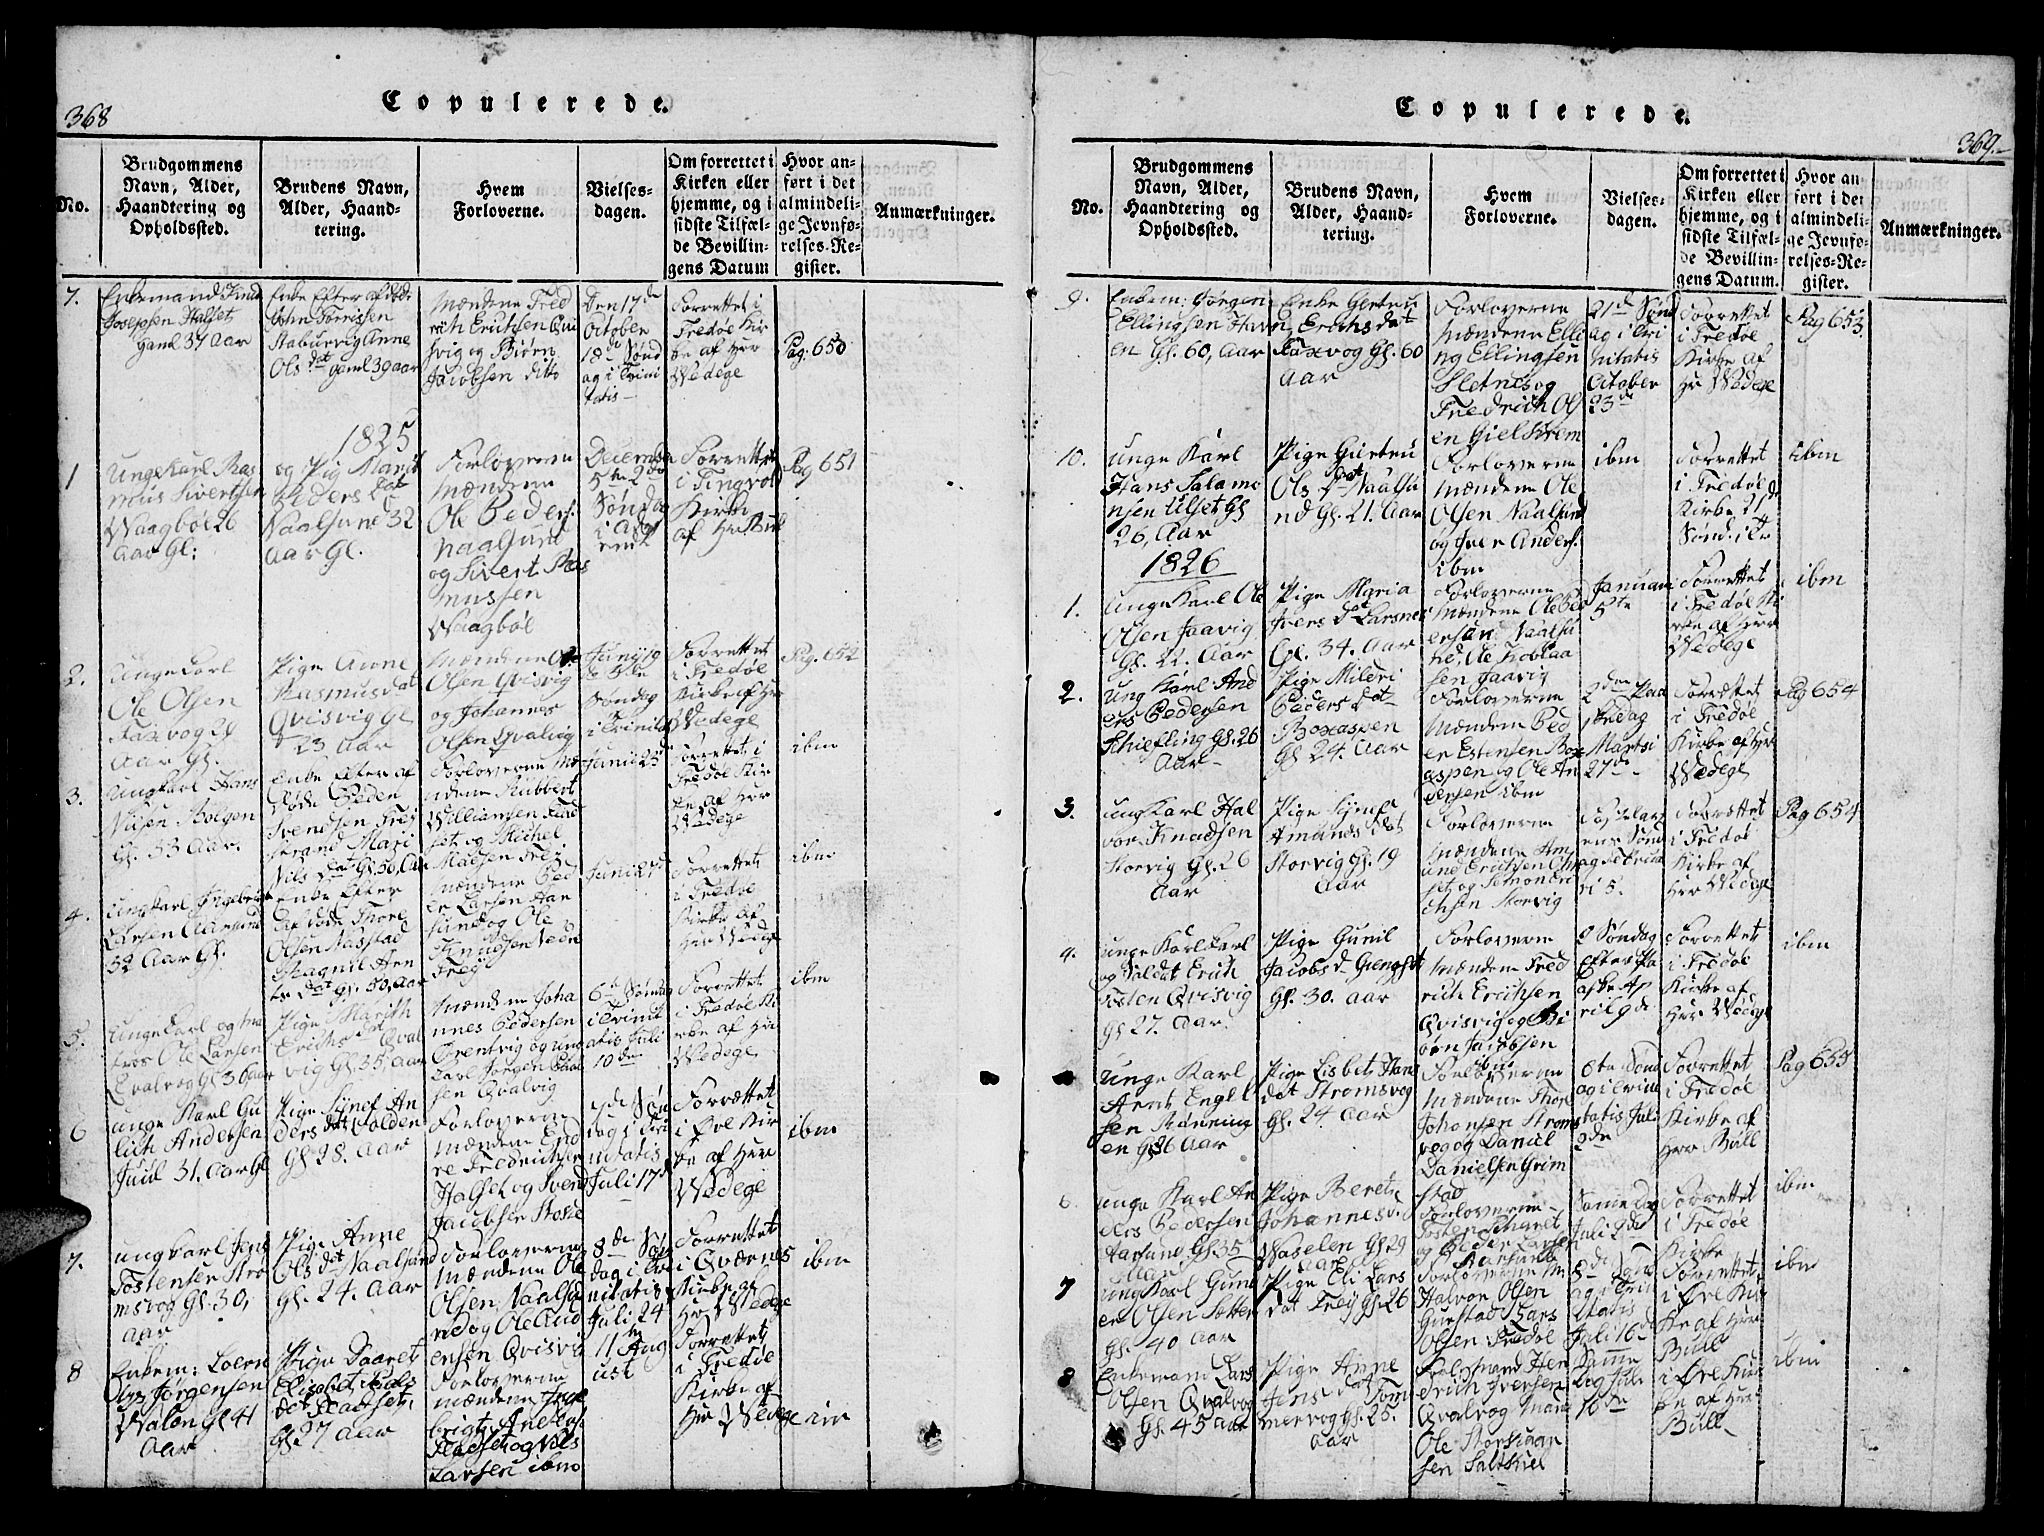 368
Copulerede.
No.
Brudgommens
Navn, Alder,
Haandtering og
Opholdssted.
Brudens Navn,
Alder, Haand-
tering.
Hvem
Forloverne.
Vielses-
dagen.
Om forrettet i
Kirken eller
hjemme, og i
sidste Tilfæl-
de Bevillin-
gens Datum
Hvor an-
ført i det
almindeli-
ge Jevnfø-
relses-Re-
gister.
Anmærkninger.
7.
Enkemand Knud
Josepsen Halset
gaml 37 Aar
Enke Efter afdøde
John Torrissen
Staburvig Anne
Ols dat gaml 39 aar
Mændene Fred
rich Erichsen Qui
svig og Biørn
Jacobsen ditto
Den 17de
October
18de Sønd
ag i Trini
tatis
Forrettet i
Fredøe Kir
ke af Herr
Wedege
Pag. 650
1825
1
Unge Karl Ras
mus Sivertsen
Waagbøe 26
Aar Gl:
og Pig Marit
Peders dat
Naalsund 32
Aar Gl.
Forloverne
Mændene
Ole Peders.
Naalsund
og Sivert Ras
mussen
Waagbøe
Decembr
5te 2de
Søndag
i Adv
endt
Forrettet
i Tingvold
Kirke
af Hr Bull
Pag 651
2.
Unge Carl
Ole Olsen
Faxvog 29
Aar Gl.
Pige Anne
Rasmusdat
Qvisvig Gl
23 Aar
Mændene Ole
Olsen Qvisvig
og Johannes
Olsen Qvalvig
Juny 19
Søndag
i Trinita
Forrettet
i Fredøe
Kirke af Hr
Wedege
Pag. 652
3.
Ung Karl Hans
Nilsen Bolgen
Gl. 53 Aar.
Enke Efter af
døde Peder
Svendsen Frey
strand Mari
Nils dat Gl. 50, Aar
Forloverne Mæ
ndene Kubbert
Williamsen Fund
set og Michel
Madsen Frei
Junii 25
Forrettet i
Fredøe Kir
ke af Herr
Wedege
ibm
4.
Ung Karl Ingebrigt
Larsen Aarsund
52 Aar Gl.
Enke Efter
afdøde Thore
Olsen Nasstad
Magnil Arn
ts dat Gl. 50, Aar
Mændene Ped
er Larsen Aar
sund og Ole
Knudsen Nedr
Frey
Junii 27
Forrettet
i Fredøe
Kirke af
Herr Wedeg
ibm
5.
Unge Carl og ma
tros Ole Larsen
Qvalvog Gl 36 aar
Pige Marith
Erichs dat Qval
vig Gl. 35, Aar
Mændene Joha
nnes Pedersen
Brentvig og ung
Carl Jørgen Paal
sen Qvalvig
6te Søndag
i Trinit
atis Juli
10de
Forrettet
i Fredøe Ki
rke af Hr
Wedege
ibm
6
unge Karl Gu
lich Andersen
Juul 31. Aar Gl
Pige Synef An
ders dat Volden
Gl 28. Aar
Forloverne
Mændene End
re Fredrichsen
Halset og Svend
Jacobsen Stokke
7de Søn
dag i Tri
nitatis
Juli 17d
Forrættet
i Øre Kir
ke af Herr
Wedege
ibm
7.
ung karl Jens
Tostensen Strø
msvog Gl. 30,
Aar
Pige Anne
Ols dat Naalsund
Gl. 24. Aar
Forloverne
Mændene Ole
Olsen Naalsu
nd og Ole And
ersen Qvisvig
8de Søn
dag i Tri
nitatis
Juli 24
Forrettet
i Qværnes
Kirke af
Hr Wedege
ibm
8
Enkem:
Jørgensen
Gl 41
Aar
Pige Daaret
Elisabet Niels
dat Fladset
Gl. 37 Aar
Forloverne
Mændene Inge
brigt
Fladset og Nils
Larsen ibm
11te Aug
ust
Forrettet
i Fredøe
Kirke af
Hr Wedege
ibm
369.
Copulerede.
No.
Brudgommens
Navn, Alder,
Haandtering og
Opholdssted.
Brudens Navn,
Alder, Haand-
tering.
Hvem
Forloverne.
Vielses-
dagen.
Om forrettet i
Kirken eller
hjemme, og i
sidste Tilfæl-
de Bevillin-
gens Datum.
Hvor an-
ført i det
almindeli-
ge Jevnfø-
relses-Re-
gister.
Anmærkninger.
9.
Enkem: Jørgen
Ellingsen Havn
en Gl. 60, Aar
Enke Gertru
Erichs dat
Faxvog Gl. 60
Aar
Forloverne
Mændene Elli
ng Ellingsen
Sletnes og
Fredrich Ols
en Gielskrem
21de Sønd
ag i Tri
nitatis
October
23de
Forrettet
i Fredøe
Kirke af
Hr Wedege
Pag 653
10.
unge Karl
Hans Salamo
nsen Ulset Gl
26, Aar
Pige Giertru
Ols dat Naalsu
nd Gl. 21. Aar
Forloverne
Mændene Ole
Olsen Naalsund
og Iver Anders.
ibm
ibm
Forrettet
i Fredøe
Kirke 21de
Sønd. i Tr
ibm
1826
1.
Unge Karl Ole
Olsen Jaavig
Gl. 22. Aar
Pige Maria
Ivers dat Larsnes
Gl. 34. Aar
Forloverne
Mændene Ole Ped
ersen Naalsu
nd, Ole
sen Jaavig
Januari
5te
Forrettet
i Fredøe Ki
rke af Herr
Wedege
ibm
2.
Ung Karl And
ers Pedersen
Schiefling Gl. 26
Aar
Pige Mildri
Peders dat
Boxaspen
Gl 24. Aar
Forloverne
Mændene Ped
er Estensen Box
aspen og Ole An
dersen ibm
2den Paa
skedag
Martsi
27de
Forrettet
i Fredøe
Kirke af Hr
Wedege
Pag 654
3.
ung Karl Hal
vor Knudsen
Storvig Gl. 26
Aar
Pige Synef
Amunds dat
Storvig Gl. 19
Aar
Forloverne
Mændene Am
und Erichsen
set og Simon Eri
chsen Storvig
Forrettet
i Fredøe
Kirke af
Herr Wedege
Pag 654
4.
unge Karl Karl
og Soldat Erich
Tosten Qvisvig
Gl 27. Aar.
Pige Gunil
Jacobs d Giengst
Gl. 30. aar
Forloverne
Mændene Fred
rich Erichsen
Qvisvig og Bi
ørn Jacobsen
ibm
2 Søndag
Efter Pa
aske Ap
ril 9de
Forrettet
i Fredøe
Kirke af
Herr Wedege
ibm
unge Karl
Arnt Engel
sen Rønning
en Gl 36 Aar
Pige Lisbet Hans
dat Stromsvog
Gl. 24 Aar
Forloverne
Mændene Thor
Johansen Stroms
vog og Daniel
Danielsen Grim
stad
6te Sønd
ag i Trini
tatis Juli
2de
Forrettet
i Fredøe
Kirke af
Herr Bull
Pag 655
6.
unge Karl An
ders Pedersen
Aarsund Gl. 35
Aar
Pige Beret
Johannesd
Waselen Gl 29
Aar
Forloverne
Tosten
og Peder Larsen
Aarsund
Samme Dag
Juli 2de
Forrettet
i Fredøe
Kirke
ibm
7
ung Karl Gunn
er Olsen Sætter
Gl. 40 Aar
Pige Eli Lars
dat Frey Gl. 26
Forloverne M
Halvor Olsen
Gurstad Lars
Olsen Fredøe
8de Sønd
ag i Trin
itatis
Juli 16de
Forrettet
i Øre Kir
ke af Herr
Bull
ibm
8
Enkemand Lars
Olsen Qvalvog
Gl. 45 aar
Pige Anne
Jens dat Tom
mervog Gl. 25.
Aar
Forlomænd Hen
drich Iversen
Qvalvog Mand
Ole
sen Saltkiel
Samme
Dag Juli
16de
Forrettet
i Øre Kir
ke af Herr
Bull
ibm